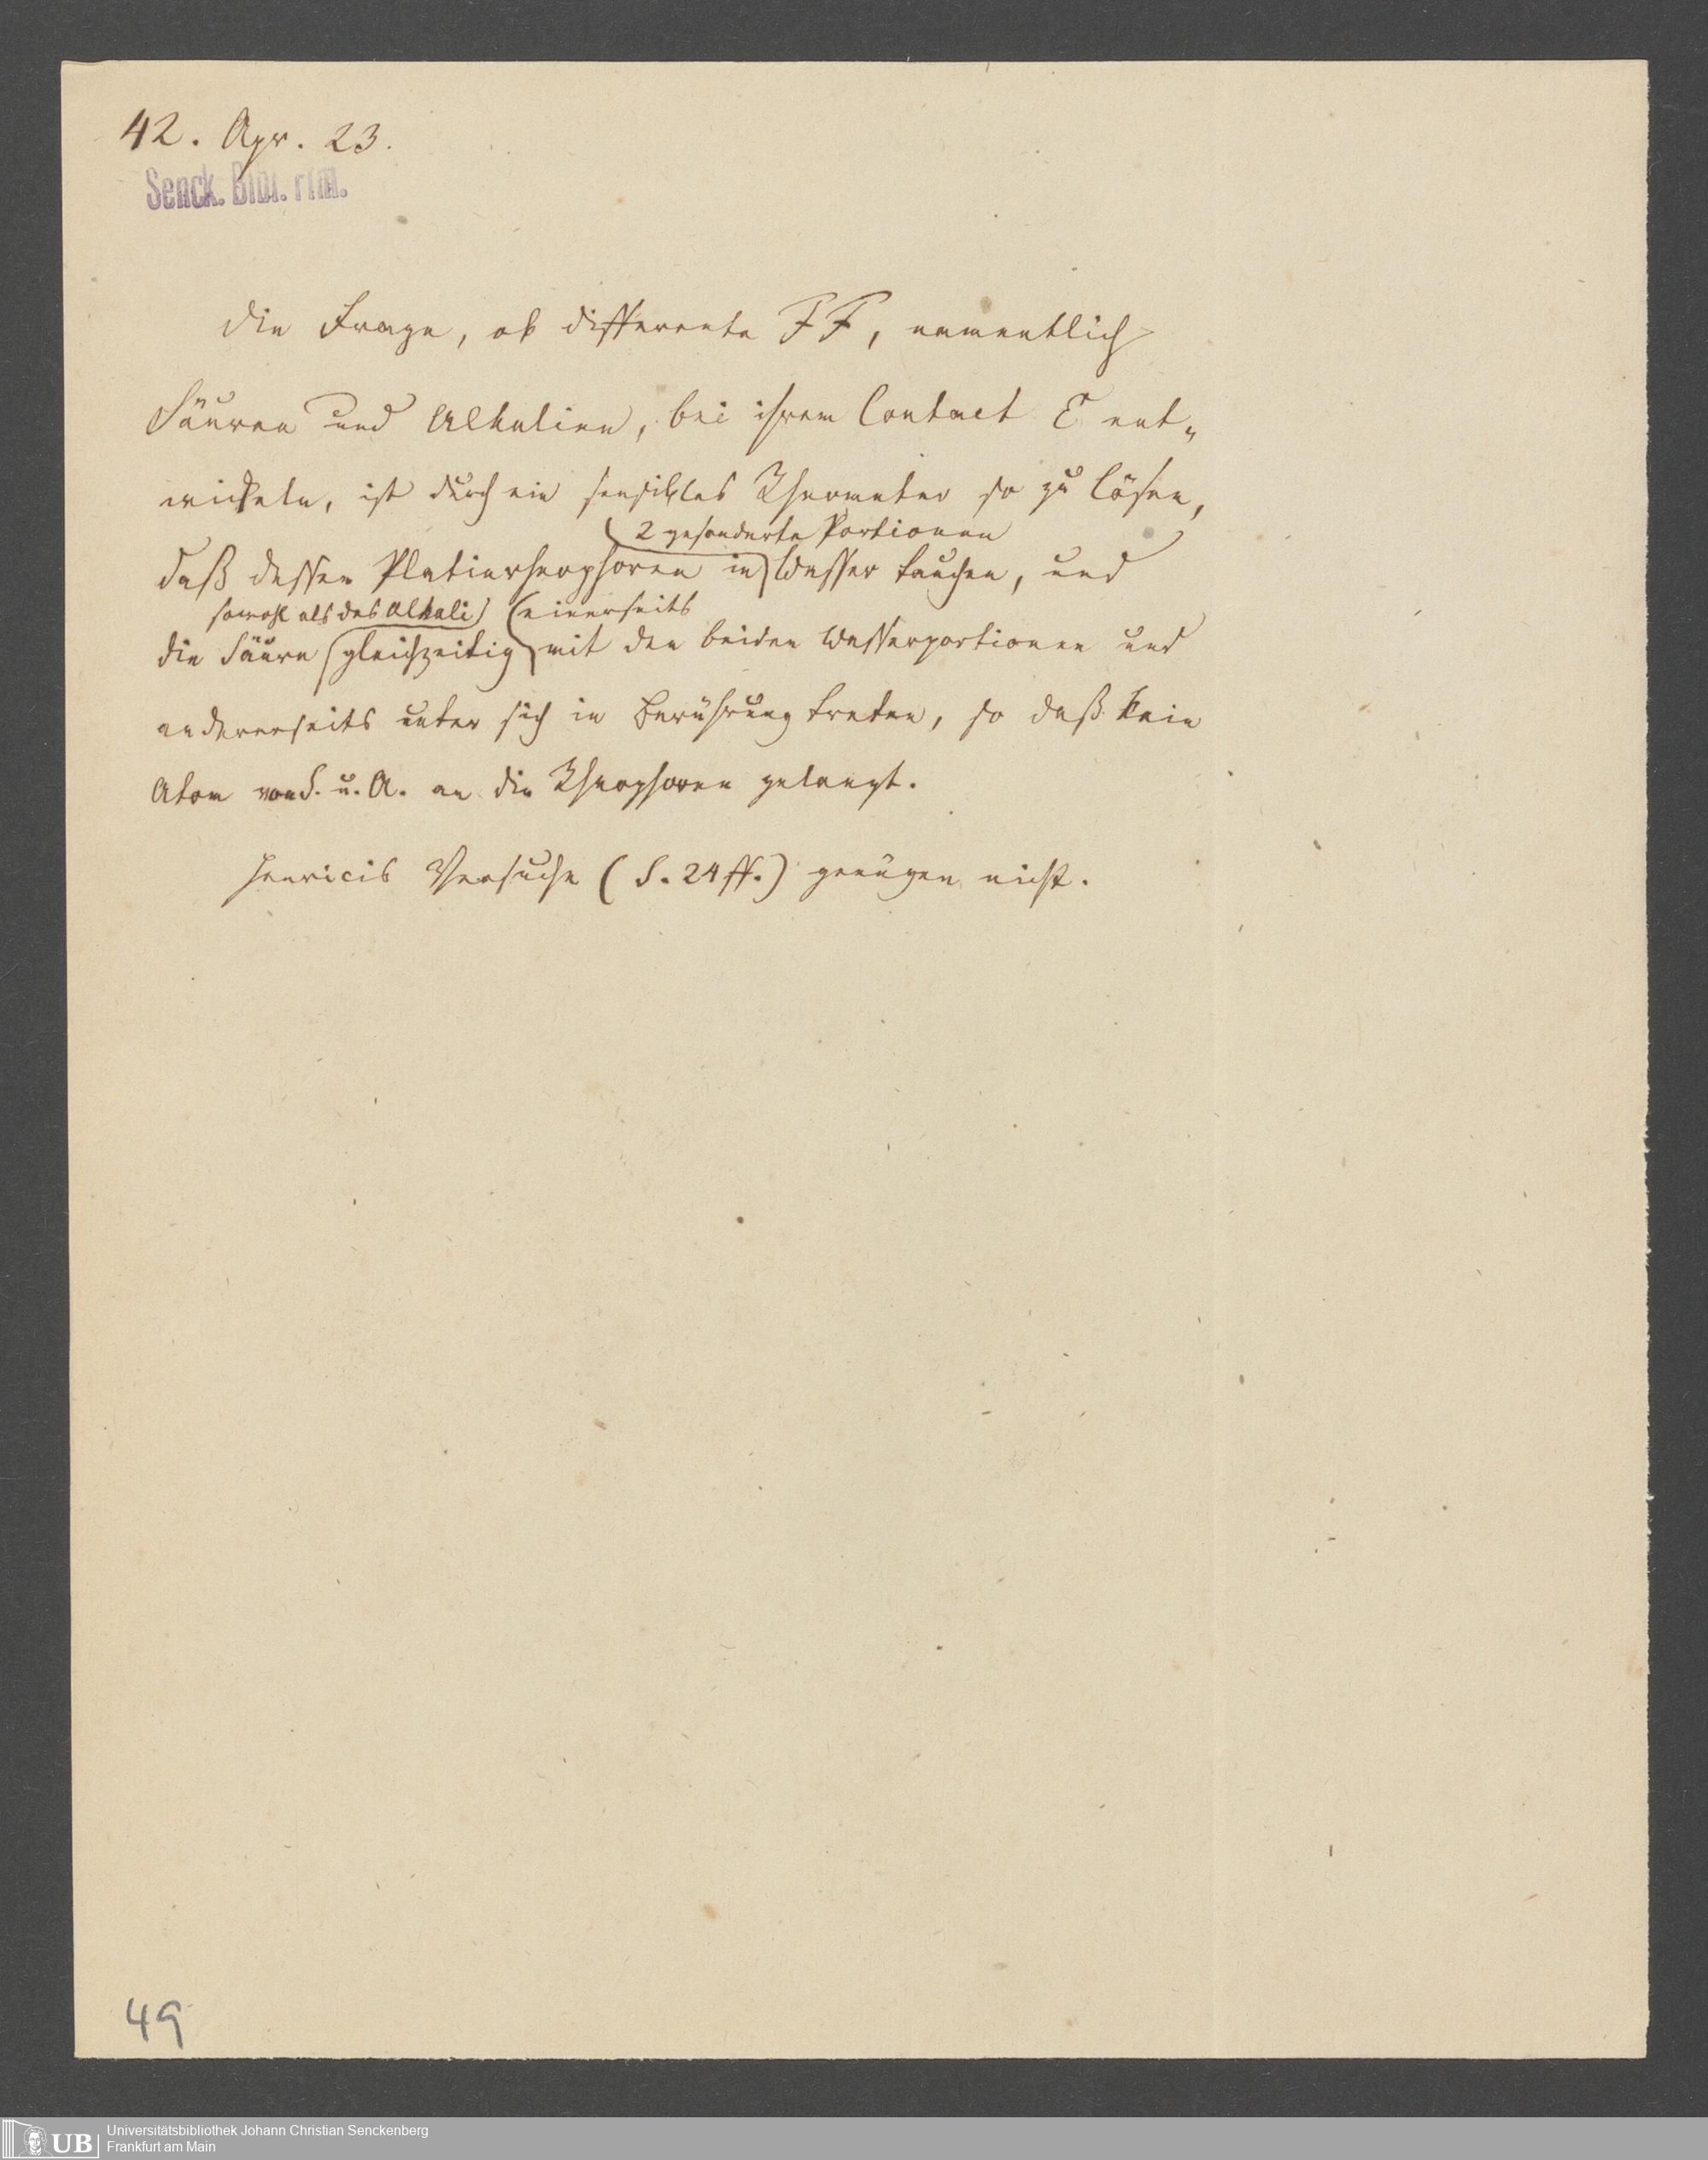 42. Apr. 23.
Senck. Bibl. Ffm.
Die Frage, ob differente FF, namentlich
Säuren und Alkalien, bei ihrem Contact E ent-
wickeln, ist durch ein sensibles Rheometer so zu lösen,
2 gesonderte Portionen
daß dessen Platinrheophoren in Wasser tauchen, und
sowohl als das Alkali einerseits
die Säure gleichzeitig mit den beiden Wasserportionen und
andererseits unter sich in Berührung treten, so daß kein
Atom von S. u. A. an die Rheophoren gelangt.
Henricis Versuche (S. 24 ff.) genügen nicht.
49
UB
Universitätsbibliothek Johann Christian Senckenberg
Frankfurt am Main